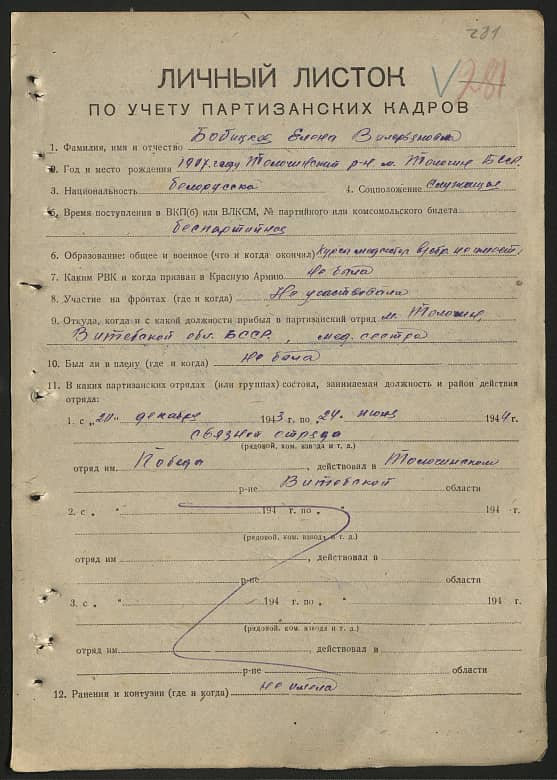 281
V 281
ЛИЧНЫЙ ЛИСТОК
ПО УЧЕТУ ПАРТИЗАНСКИХ КАДРОВ
1. Фамилия, имя и отчество Бобицкая Елена Валерьяновна
2. Год и место рождения 1917 году Толочинский р-н м. Толочин БССР.
3. Национальность белорусска 4. Соцположение служащая
5. Время поступления в ВКП(б) или ВЛКСМ, № партийного или комсомольского билета
беспартийная
6. Образование: общее и военное (что и когда окончил) курсы медсестер
7. Каким РВК и когда призван в Красную Армию не была
8. Участие на фронтах (где и когда) Не участвовала
9. Откуда, когда и с какой должности прибыл в партизанский отряд м. Толочин,
Витебской обл. БССР, мед. сестра
10. Был ли в плену (где и когда) не была
11. В каких партизанских отрядах (или группах) состоял, занимаемая должность и район действия
отряда:
1. с „20" декабря 1943 г. по „24" июня 1944 г.
связной отряда
(рядовой, ком. взвода и т. д.)
отряд им. Победа, действовал в Толочинском
р-не Витебской области
2. с „ " 194 г. по „ " 194 г.
(рядовой, ком. взвода и т. д.)
отряд им , действовал в
р-не области
3. с „ " 194 г. по „ " 194 г.
(рядовой, ком. взвода и т. д.)
отряд им. , действовал в
р-не области
12. Ранения и контузии (где и когда) не имела